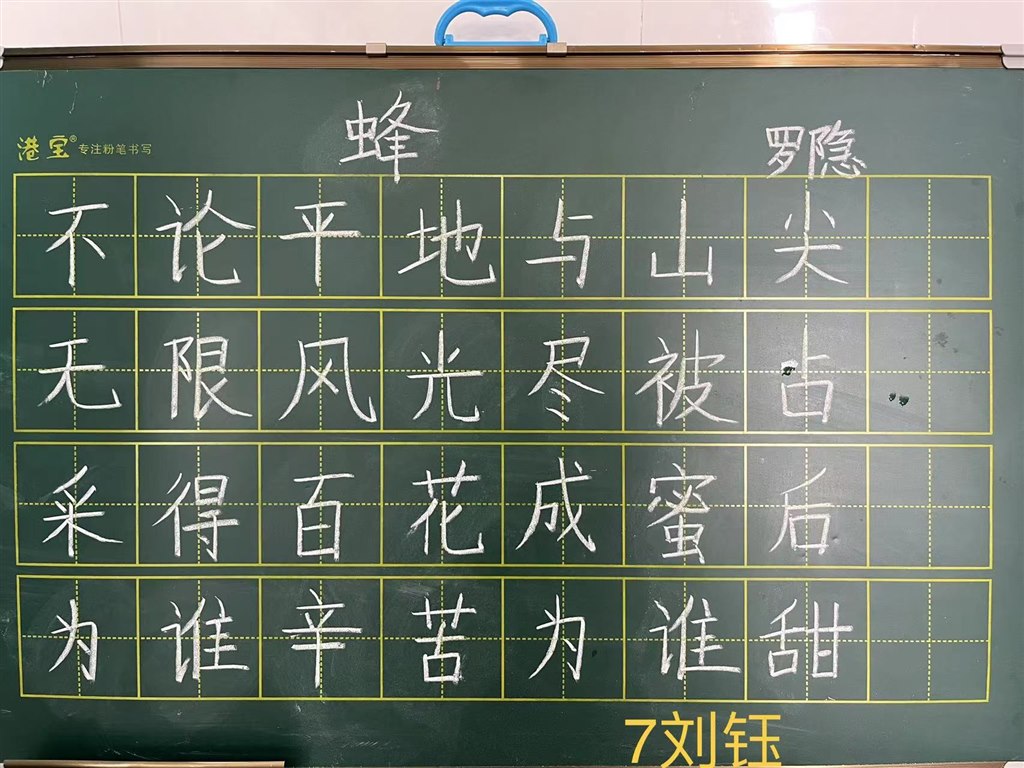 蜂
罗隐
港宝® 专注粉笔书写
不论平地与山尖
无限风光尽被占
采得百花成蜜后
为谁辛苦为谁甜
7刘钰